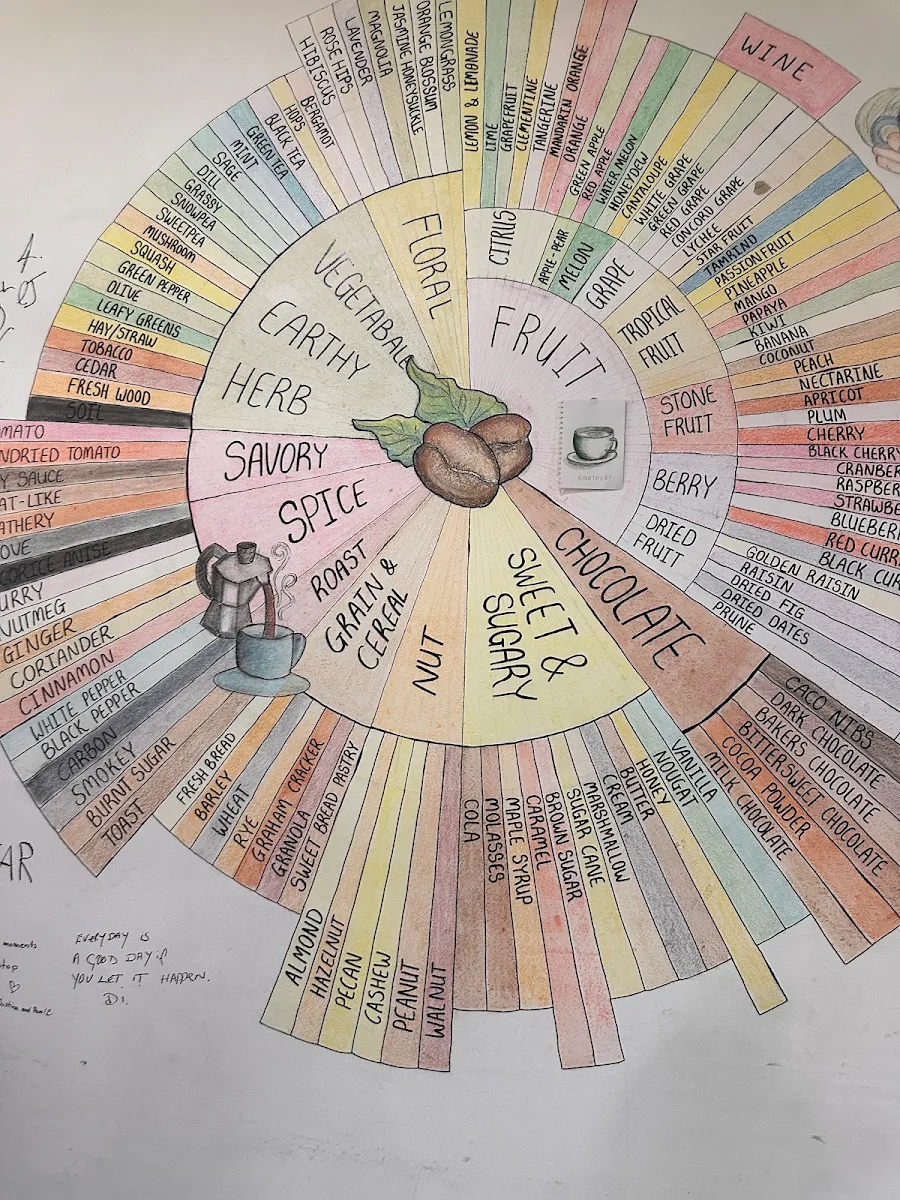 WINE
HIBISCUS
ROSE HIPS
LAVENDER
MAGNOLIA
JASMINE HONEYSUCKLE
ORANGE BLOSSUM
LEMONGRASS
LEMON & LEMONADE
LIME
GRAPEFRUIT
CLEMENTINE
TANGERINE
MANDARIN ORANGE
ORANGE
GREEN APPLE
RED APPLE
WATER MELON
HONEYDEW
CANTALOUPE
WHITE GRAPE
GREEN GRAPE
RED GRAPE
CONCORD GRAPE
LYCHEE
STAR FRUIT
TAMRIND
PASSIONFRUIT
PINEAPPLE
MANGO
PAPAYA
KIWI
BANANA
COCONUT
PEACH
NECTARINE
APRICOT
PLUM
CHERRY
BLACK CHERRY
CRANBER
RASPBER
STRAWBE
BLUEBERR
RED CURR
BLACK CUR
GOLDEN RAISIN
RAISIN
DRIED FIG
DRIED DATES
PRUNE
CACO NIBS
DARK CHOCOLATE
BAKERS CHOCOLATE
BITTERSWEET CHOCOLATE
COCOA POWDER
MILK CHOCOLATE
VANILLA
NOUGAT
HONEY
BUTTER
CREAM
MARSHMALLOW
SUGAR CANE
BROWN SUGAR
CARAMEL
MAPLE SYRUP
MOLASSES
COLA
WALNUT
PEANUT
CASHEW
PECAN
HAZELNUT
ALMOND
SWEET BREAD PASTRY
GRANOLA
GRAHAM CRACKER
RYE
WHEAT
BARLEY
FRESH BREAD
TOAST
BURNT SUGAR
SMOKEY
CARBON
BLACK PEPPER
WHITE PEPPER
CINNAMON
CORIANDER
GINGER
NUTMEG
URRY
CORICE ANISE
OVE
ATHERY
AT-LIKE
Y SAUCE
NDRIED TOMATO
MATO
SOIL
FRESH WOOD
CEDAR
TOBACCO
HAY/STRAW
LEAFY GREENS
OLIVE
GREEN PEPPER
SQUASH
MUSHROOM
SWEETPEA
SNOWPEA
GRASSY
DILL
SAGE
MINT
GREEN TEA
BLACK TEA
HOPS
BERGAMOT
FLORAL
CITRUS
APPLE-PEAR
MELON
GRAPE
TROPICAL
FRUIT
STONE
FRUIT
BERRY
DRIED
FRUIT
FRUIT
CHOCOLATE
SWEET &
SUGARY
NUT
GRAIN &
CEREAL
ROAST
SPICE
SAVORY
HERB
EARTHY
VEGETABAL
ANOTHER?
AR
moments
top
EVERYDAY IS
A GOOD DAY if
YOU LET IT HAPPEN.
DI.